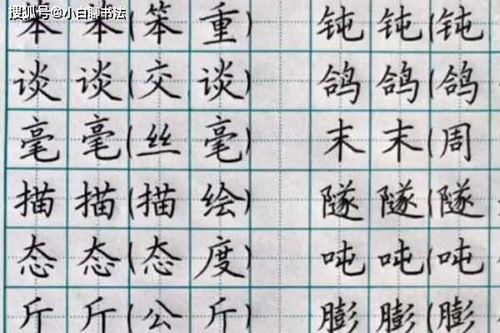 搜狐号@小白聊书法
笨 笨(笨 重) 钝 钝(钝
谈 谈(交 谈) 鸽 鸽(鸽
毫 毫(丝 毫) 末 末(周
描 描(描 绘) 隧 隧(隧
态 态(态 度) 吨 吨(吨
斤 斤(公 斤) 膨 膨(膨